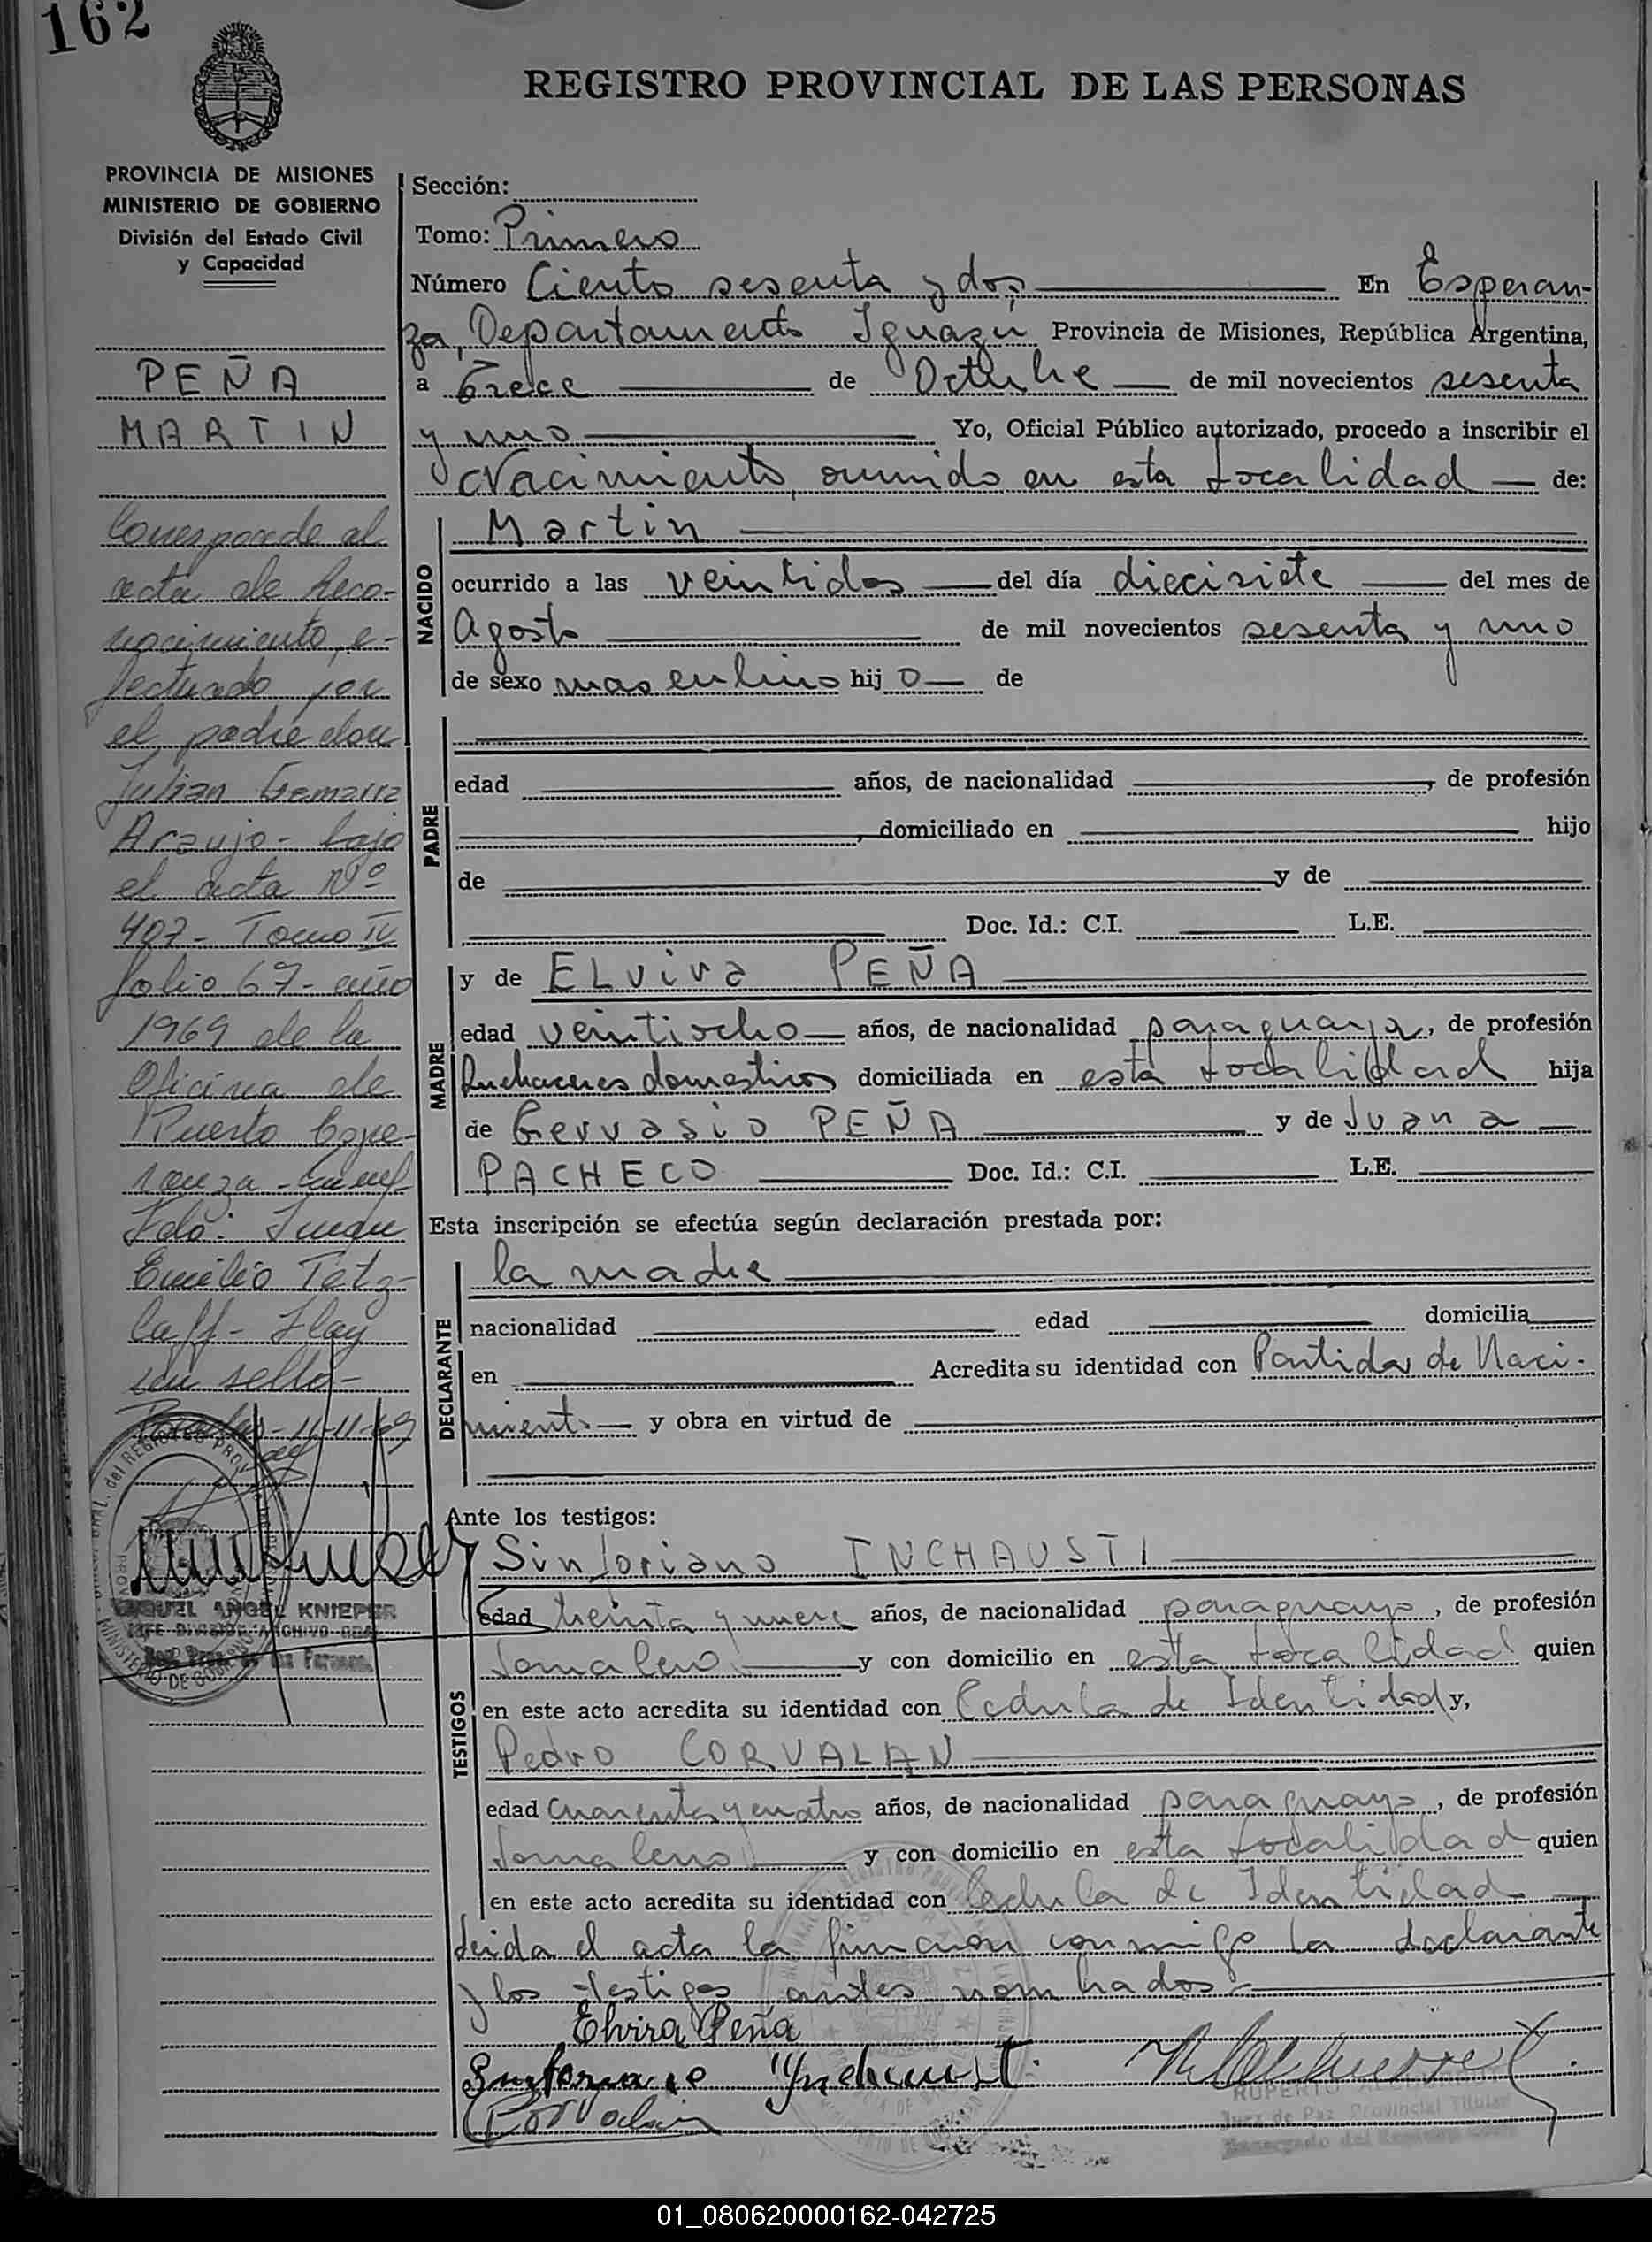 162
REGISTRO PROVINCIAL DE LAS PERSONAS
PROVINCIA DE MISIONES
MINISTERIO DE GOBIERNO
División del Estado Civil
y Capacidad
PEÑA
MARTIN
Corresponde al
acta de Reco-
nocimiento, e-
fectuado por
el padre don
Julian Gamarra
Araujo - bajo
el acta Nº
407 - Tomo IV
folio 67 - año
1969 de la
Oficina de
Puerto Espe-
ranza -
Fdo: Juan
Emilio Tetz-
laff - Hay
un sello -
Posadas - 11-11-69
MIGUEL ANGEL KNIEPER
JEFE DIVISION ARCHIVO GRAL
Sección:
Tomo: Primero
Número Ciento sesenta y dos En Esperan-
za, Departamento Iguazú Provincia de Misiones, República Argentina,
a Trece de Octubre de mil novecientos sesenta
y uno Yo, Oficial Público autorizado, procedo a inscribir el
Nacimiento, ocurrido en esta localidad de:
NACIDO
Martin
ocurrido a las veintidos del día diecisiete del mes de
Agosto de mil novecientos sesenta y uno
de sexo masculino hij o de
PADRE
edad años, de nacionalidad , de profesión
, domiciliado en hijo
de y de
Doc. Id.: C.I. L.E.
MADRE
y de Elvira PEÑA
edad veintiocho años, de nacionalidad paraguaya, de profesión
Quehaceres domesticos domiciliada en esta localidad hija
de Gervasio PEÑA y de Juana
PACHECO Doc. Id.: C.I. L.E.
Esta inscripción se efectúa según declaración prestada por:
DECLARANTE
la madre
nacionalidad edad domicilia
en Acredita su identidad con Partida de Naci-
miento y obra en virtud de
Ante los testigos:
TESTIGOS
Sinforiano INCHAUSTI
edad treinta y nueve años, de nacionalidad paraguayo, de profesión
Jornalero y con domicilio en esta localidad quien
en este acto acredita su identidad con Cedula de Identidad y,
Pedro CORVALAN
edad cuarenta y cuatro años, de nacionalidad paraguayo, de profesión
Jornalero y con domicilio en esta localidad quien
en este acto acredita su identidad con Cedula de Identidad
Leida el acta la firman conmigo la declarante
y los testigos antes nombrados.
Elvira Peña
Corvalan
RUPERTO
Juez de Paz Provincial Titular
Encargado del Registro Civil
01_080620000162-042725